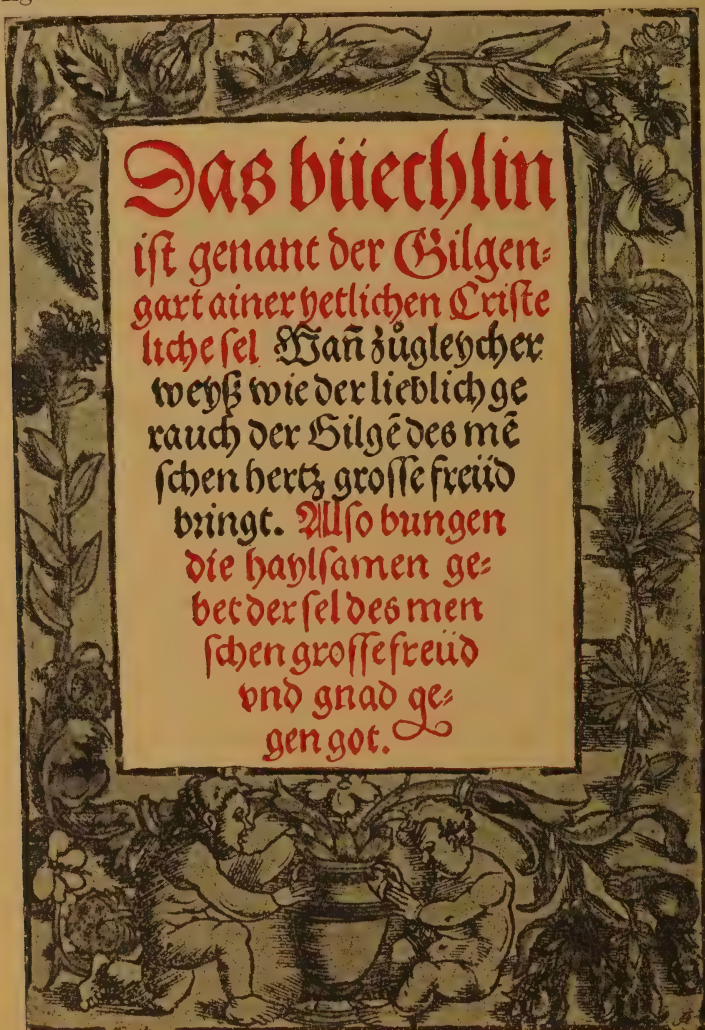 Das büechlin
ist genant der Gilgen-
gart ainer yetlichen Criste
liche sel Wañ zůgleycher
weyß wie der lieblich ge
rauch der Gilgē des mē
schen hertz grosse freüd
bringt. Also bungen
die haylsamen ge-
bet der sel des men
schen grosse freüd
vnd gnad ge-
gen got.